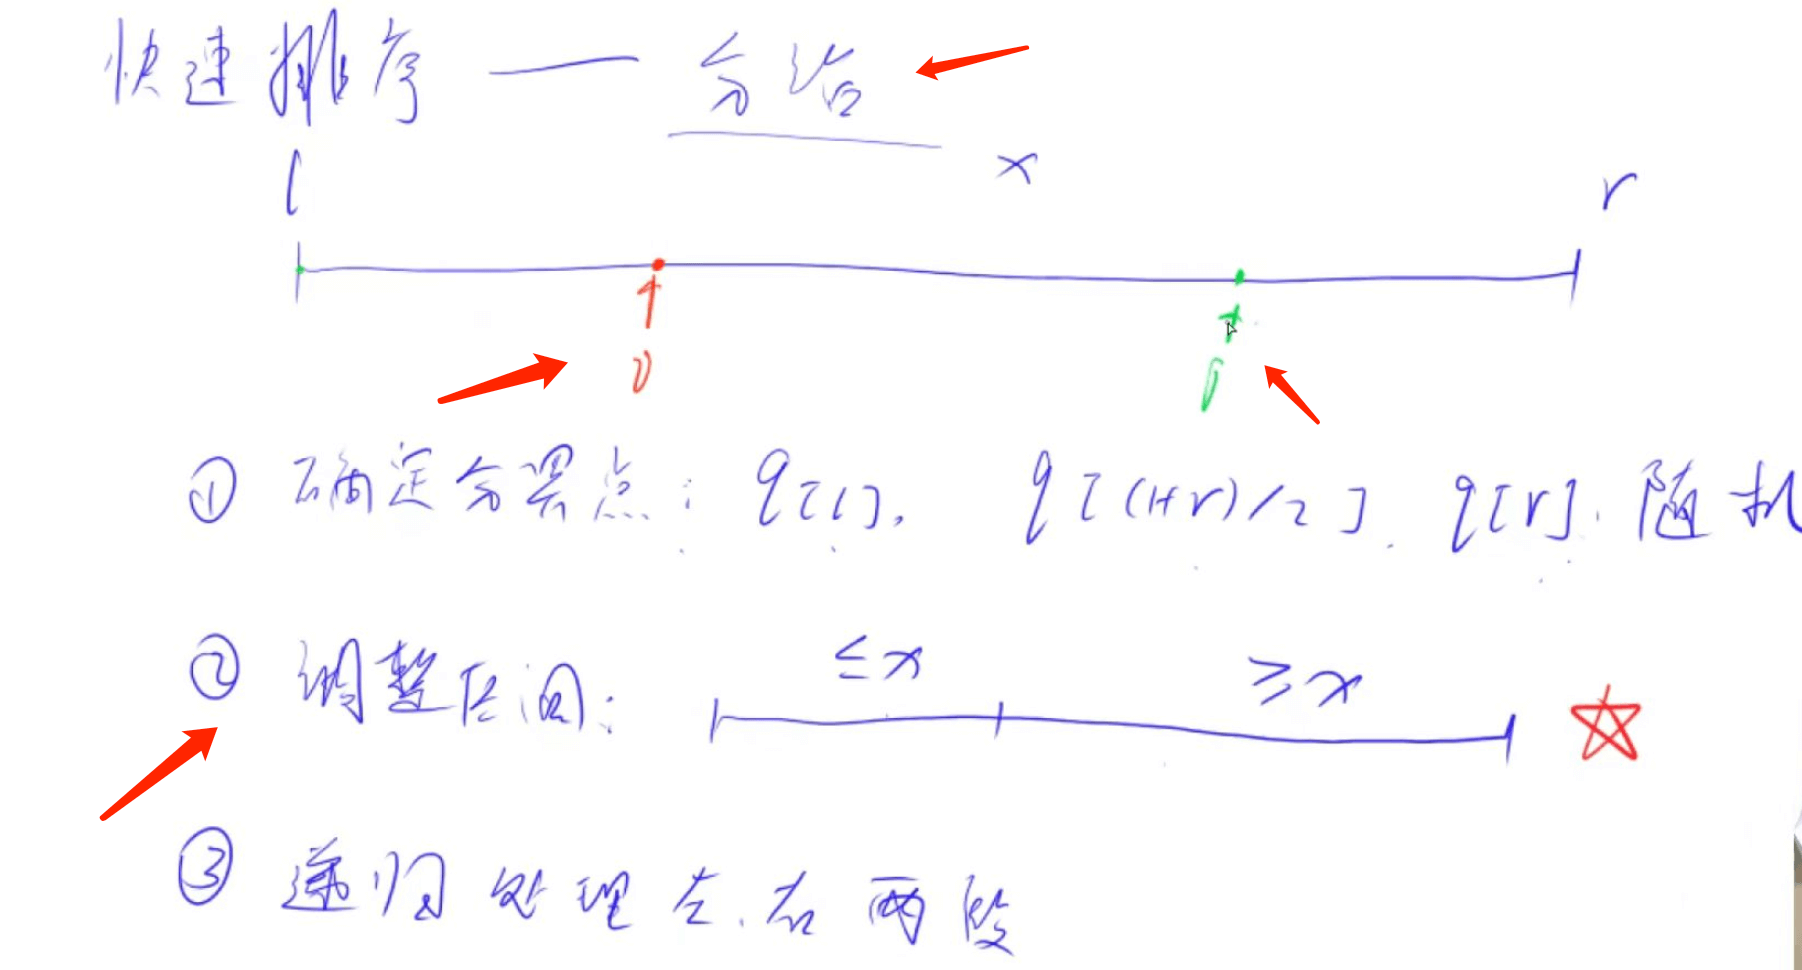 快速排序 — 分治
x
l r
① 确定分界点: q[l]. q[(l+r)/2]. q[r]. 随机
② 调整区间: ≤x ≥x
③ 递归处理左、右两段